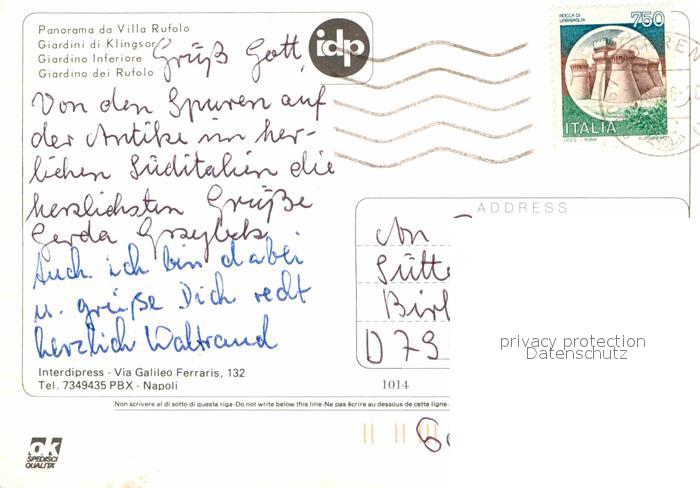 Panorama da Villa Rufolo
Giardini di Klingsor
Giardino Inferiore
Giardino dei Rufolo
idp
ROCCA DI URBISAGLIA
750
ITALIA
I.P.Z.S. - ROMA
Grüß Gott,
Von den Spuren auf
der Antike im her-
lichen Süditalien die
herzlichsten Grüße
Gerda
Auch ich bin dabei
u. grüße Dich recht
herzlich Waltraud
ADDRESS
An
D 79
privacy protection
Datenschutz
Interdipress - Via Galileo Ferraris, 132
Tel. 7349435 PBX - Napoli
1014
Non scrivere al di sotto di questa riga-Do not write below this line-Ne pas écrire au dessous de cette ligne
ok
SPEDISCI
QUALITÀ